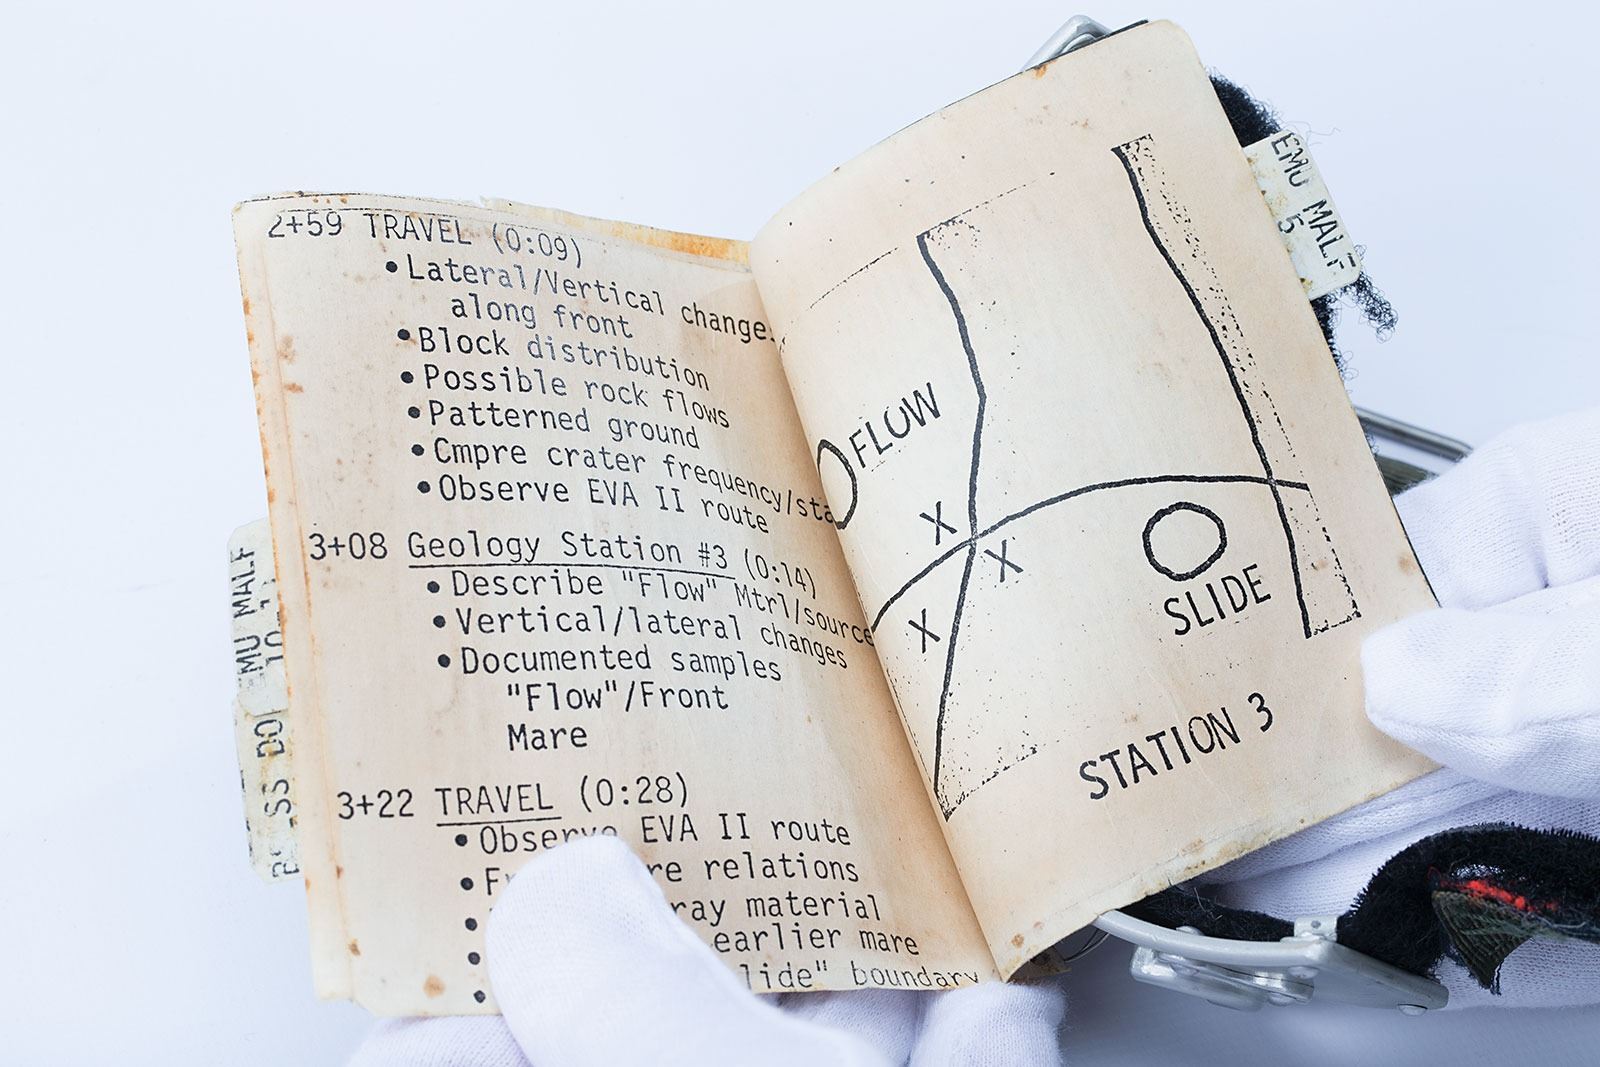 2+59 TRAVEL (0:09)
•Lateral/Vertical change
along front
•Block distribution
•Possible rock flows
•Patterned ground
•Cmpre crater frequency/sta
•Observe EVA II route
3+08 Geology Station #3 (0:14)
•Describe "Flow" Mtrl/source
•Vertical/lateral changes
•Documented samples
"Flow"/Front
Mare
3+22 TRAVEL (0:28)
•Observe EVA II route
• relations
• ray material
• earlier mare
• lide" boundary
FLOW
X
X
X
SLIDE
STATION 3
EMU MALF
5
EMU MALF
10-1
SS DO